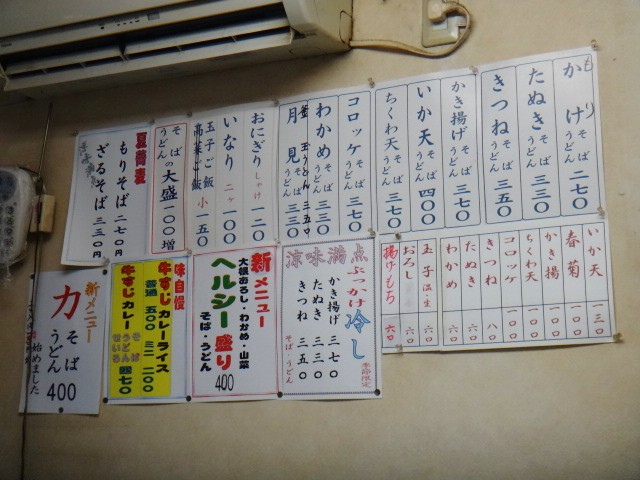 もり
かけ そば うどん 二七〇
たぬき そば うどん 三三〇
きつね そば うどん 三五〇
かき揚げ そば うどん 三七〇
いか天 そば うどん 四〇〇
ちくわ天 そば うどん 三七〇
コロッケ そば うどん 三七〇
わかめ そば うどん 三三〇
釜玉うどん 三五〇
月見 そば うどん 三三〇
おにぎり しゃけ 一二〇
いなり 二ヶ 一〇〇
玉子ご飯
高菜ご飯 小 一五〇
そば うどん の大盛 一〇〇増
夏蕎麦
もりそば 二七〇円
涼味満点
ざるそば 三三〇円
いか天 一三〇
春菊 一〇〇
かき揚 一〇〇
ちくわ天 一〇〇
コロッケ 一〇〇
きつね 八〇
たぬき 六〇
わかめ 六〇
玉子 温 生 六〇
おろし
揚げもち 六〇
涼味満点
ぶっかけ冷し
かき揚げ 三七〇
たぬき 三三〇
きつね 三五〇
そば・うどん
季節限定
新メニュー
大根おろし・わかめ・山菜
ヘルシー盛り
そば・うどん 400
味自慢
牛すじカレーライス
普通 五〇〇 ミニ 二〇〇
牛すじカレー
そば うどん せいろ 四七〇
新メニュー
力 そば うどん 400
始めました